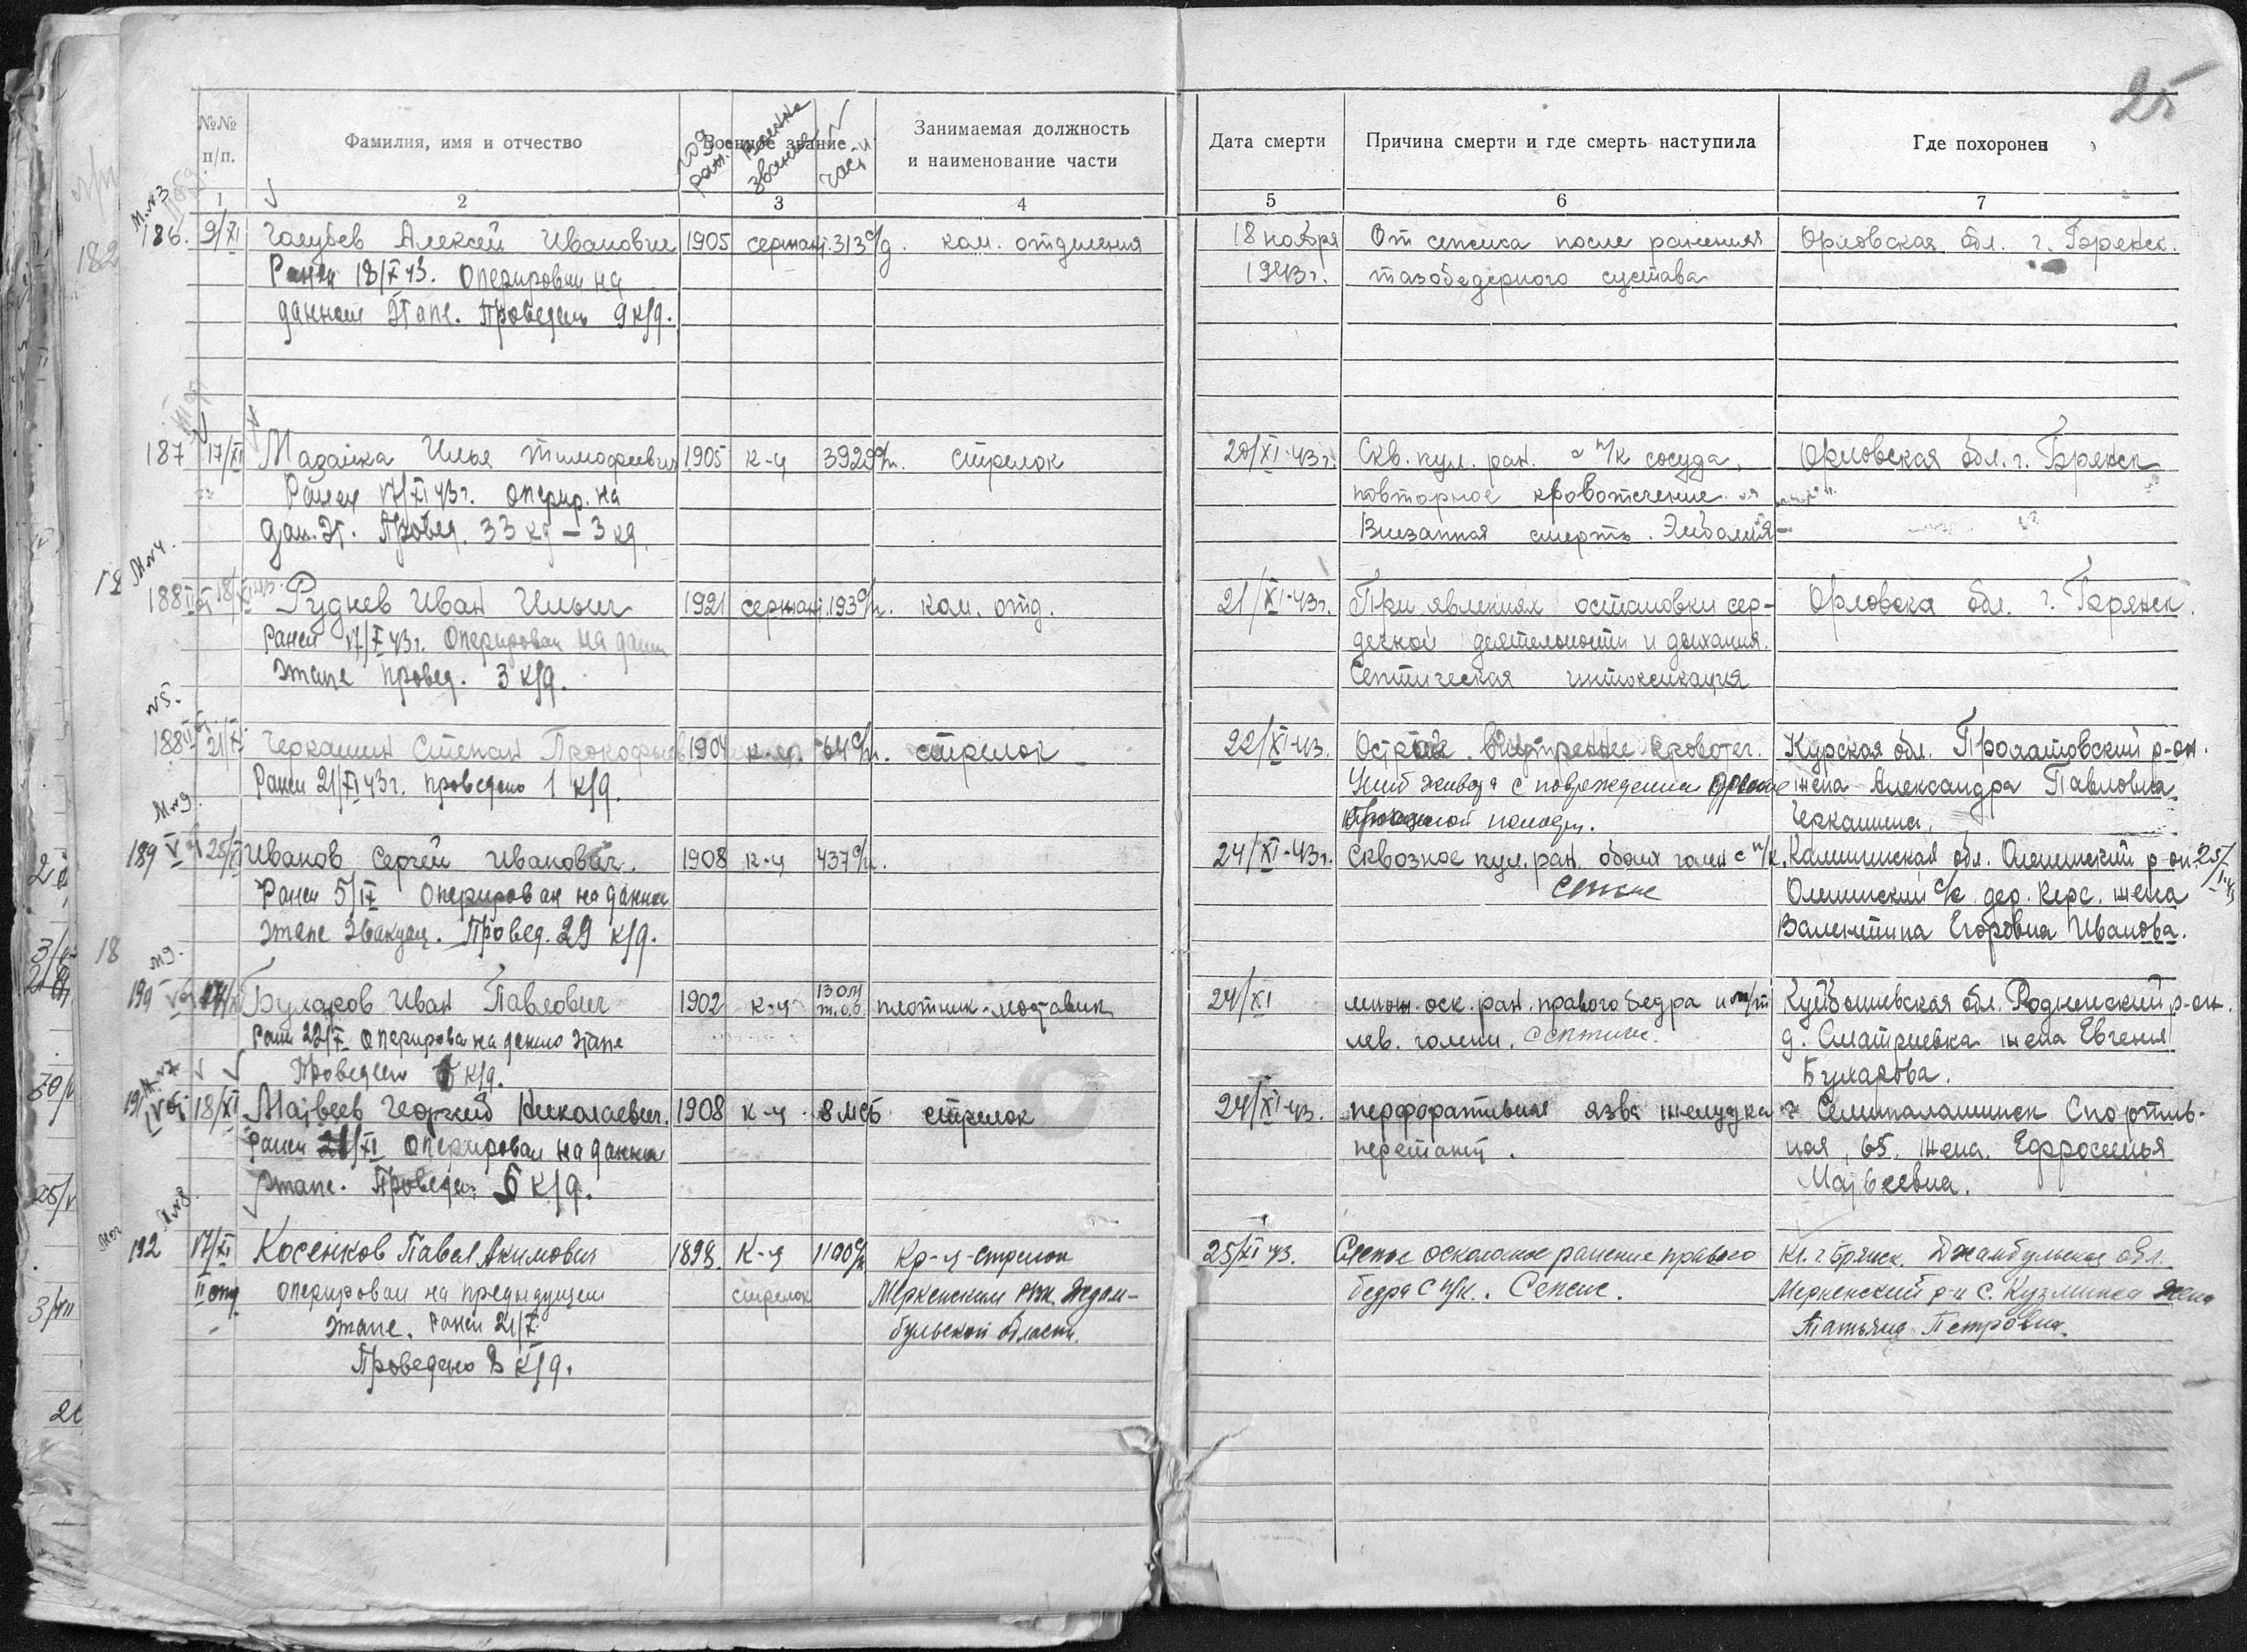 25
№№ п/п. Фамилия, имя и отчество Военное звание Занимаемая должность и наименование части Дата смерти Причина смерти и где смерть наступила Где похоронен
год рож. военное звание часть
1 2 3 4 5 6 7
М. №3
186. 9/XI Голубев Алексей Иванович 1905 сержант 313 с/д. ком. отделения 18 ноября От сепсиса после ранения Орловская обл. г. Брянск.
Ранен 18/X 43. Оперирован на 1943 г. тазобедерного сустава
данном Этапе. Проведено 9 к/д.
187 17/XI Мазайка Илья Тимофеевич 1905 к-ц 3929 стрелок 20/XI-43 г. Скв. пул. ран. с п/к сосуда, Орловская обл. г. Брянск
Ранен 17/XI 43 г. Опер. на повторное кровотечение
Дан. Эт. Провед. 33 кд – 3 кд. Внезапная смерть. Эмболия –
М №4.
188 18/XI 43. Руднев Иван Ильич 1921 сержант 193 с/п. ком. отд. 21/XI-43 г. При явлениях остановки сер- Орловска обл. г. Брянск.
Ранен 17/X 43 г. Оперирован на данн дечной деятельности и дыхания.
Этапе провед. 3 к/д. Септическая интоксикация
№5.
188 21/XI Черкашин Степан Прокофьев 1904 к-ц 64 с/п. стрелок 22/XI-43. Остр. внутренне кровотеч. Курская обл. р-он.
Ранен 21/XI 43 г. проведено 1 к/д. Ушиб живота с повреждением жена Александра Павловна
полости. Черкашина.
М №9.
189 25/XI Иванов Сергей Иванович. 1908 к-ц 437 с/п. 24/XI-43 г. Сквозное пул. ран. обоих голен с п/к. Калининская обл. Оленинский р-он.
Ранен 5/IX Оперирован на данном Сепсис Оленинский с/с дер. Керс. жена
этапе Эвакуац. Провед. 29 к/д. Валентина Егоровна Иванова.
№9.
190 Бухаров Иван Павлович 1902 к-ц 130 м.о.б. плотник-мостовик 24/XI множ. оск. ран. правого бедра и м/т Куйбышевская обл. р-он.
Ран 22/X Оперирован на данно этапе лев. голени. д. жена Евгения
Проведен к/д. Бухарова.
191 18/XI Матвеев Георгий Николаевич. 1908 к-ц 8 МСБ стрелок 24/XI-43. перфоративная язва желудка г. Семипалатинск Спортив-
Ранен 21/XI Оперирован на данном перетонит. ная, 65. жена. Ефросинья
Этапе. Проведен 6 к/д. Матвеевна.
М №8.
192 17/XI Косенков Павел Акимович 1898. К-ц 1100 с/п Кр-ц-стрелок 25/XI 43. Слепое осколочное ранение правого Кл. г. Брянск. Джамбульская обл.
II отд Оперирован на предыдущем стрелок Меркенским РВК Джам- бедра с п/к. Сепсис. Меркенский р-н с. Кузминка Жена
Этапе. Ранен 21/X. бульской области. Татьяна Петровна.
Проведено 8 к/д.